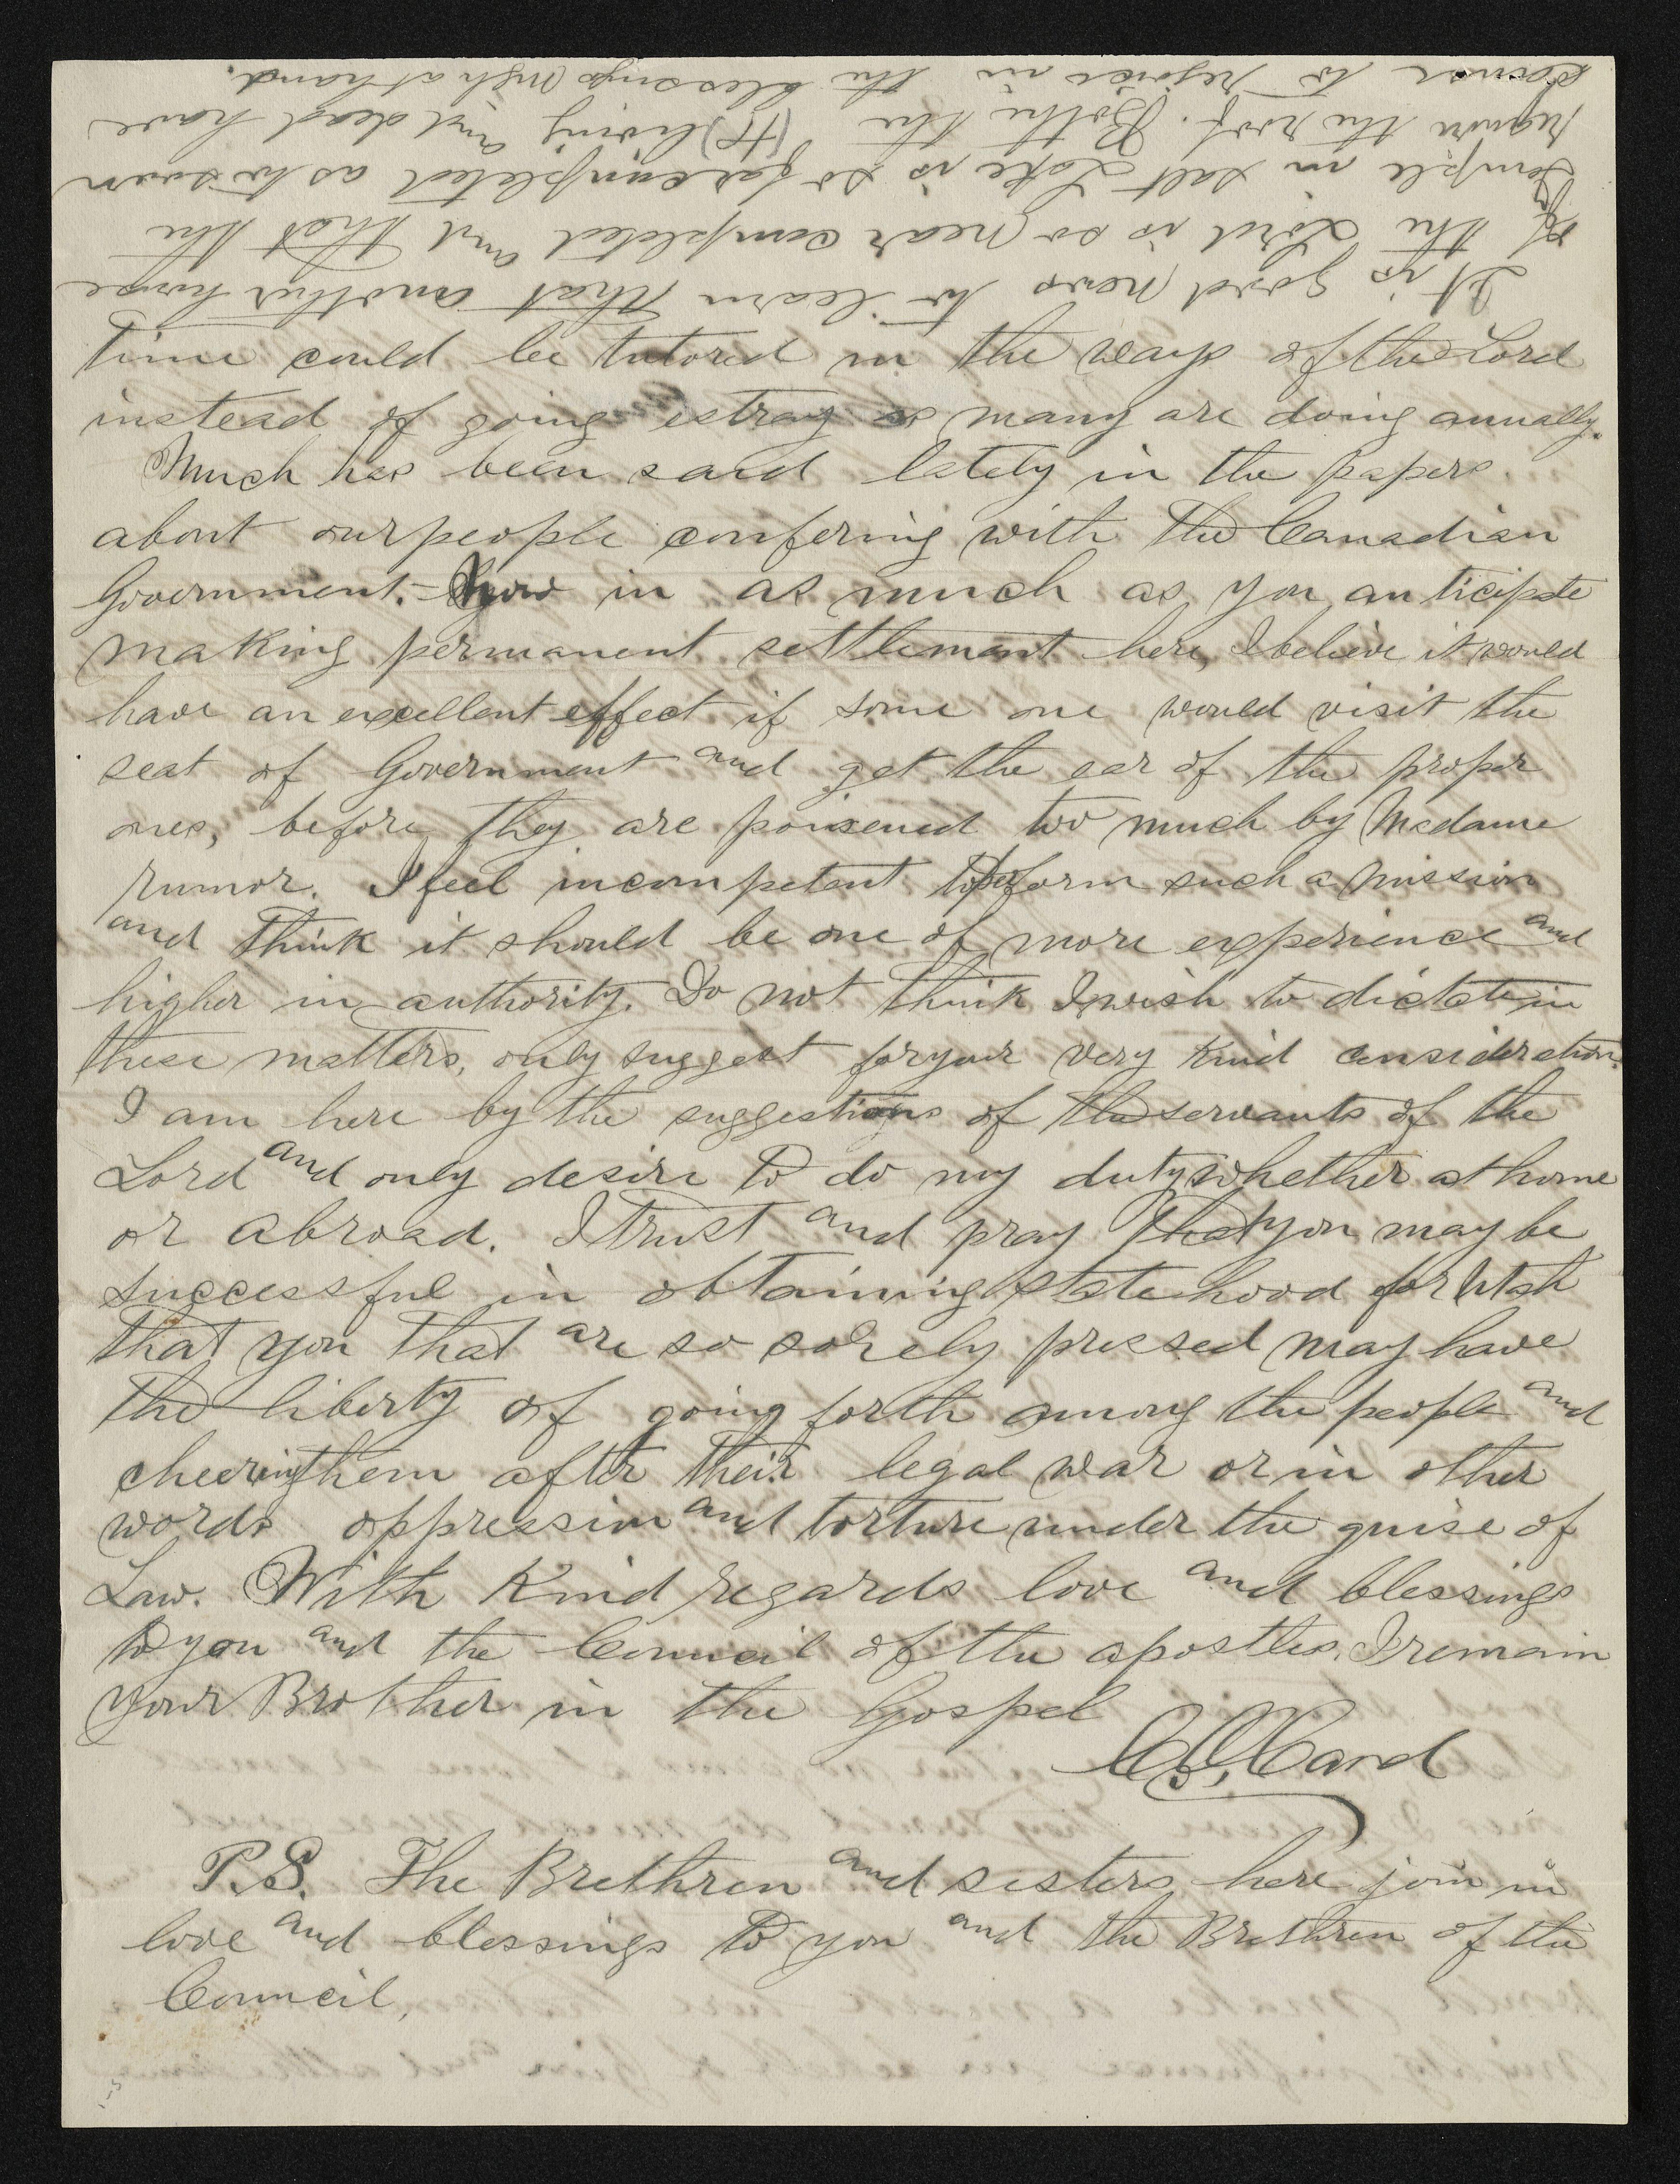 time could be tutored in the ways of the Lord
instead of going estray as many are doing annually.
Much has been said lately in the papers
about our people confering with the Canadian
Government. - Now in as much as you anticipate
making permanent settlement here, I believe it would
have an excellent effect if some one would visit the
seat of Government and get the ear of the proper
ones, before they are poisened too much by Madame
rumor. I feel incompetent to perform such a mission
and think it should be one of more experience and
higher in authority. Do not think I wish to dictate in
these matters, only suggest for your very kind consideration.
I am here by the suggestions of the servants of the
Lord and only desire to do my duty whether at home
or abroad. I trust and pray that you may be
successful in obtaining statehood for Utah
that you that are so sorely pressed may have
the liberty of going forth among the people and
cheering them after their legal war or in other
words oppression and torture under the guise of
Law. With Kind regards love and blessings
to you and the Council of the apostles, I remain
your Brother in the Gospel
C.O. Card
P.S. The Brethren and sisters here join in
love and blessings to you and the Brethren of the
Council,
It is good news to learn that another house
of the Lord is so near completed and that the
Temple in Salt Lake is so far completed as to soon
require the roof. Bothe the living and dead have
cause to rejoice in the blessings nigh at hand.